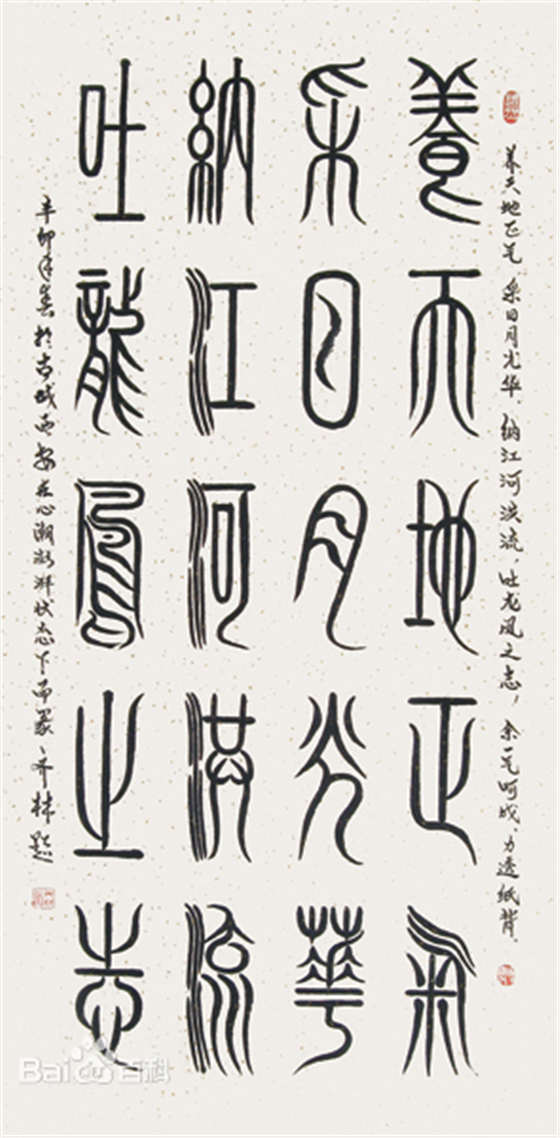 养天地正气，采日月光华，纳江河洪流，吐龙凤之志，余一气呵成、力透纸背。
養天地正氣
采日月光華
納江河洪流
吐龍鳳之志
辛卯年春於古城西安在心潮澎湃状态下而篆
Bai百科